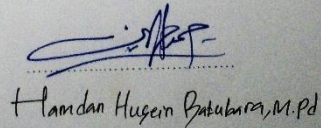 Hamdan Husein Batubara, M.Pd